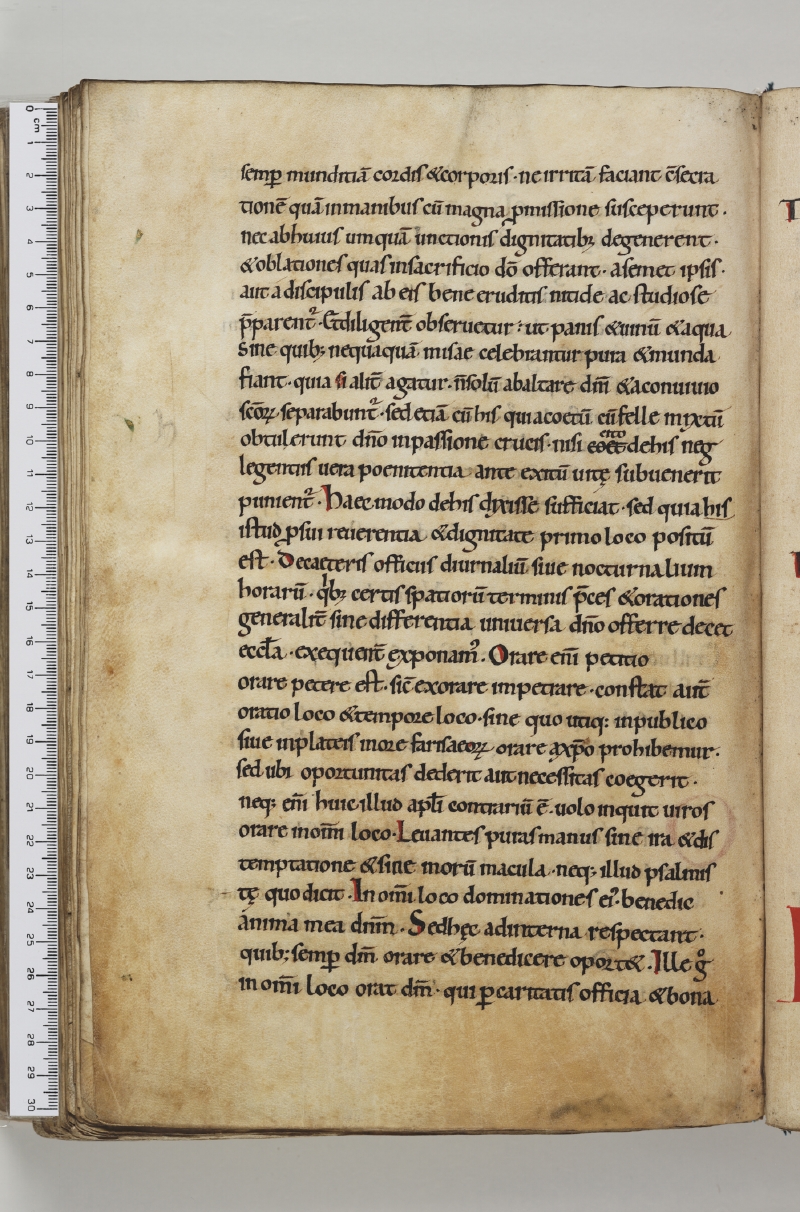 semꝑ munditiā cordis &corporis · ne irritā faciant cῑsecra
tionē quā inmanibus cū magna ꝓmissione susceperunt .
nec abhuius umquā unctionis dignitatibꝫ degenerent ·
&oblationes quas insacrificio dō offerant · asemet ipsis ·
aut a discipulis ab eis bene eruditis nitide ac studiose
p̄parent᷑ · Et diligent̄ obseruetur : ut panis &uinū &aqua
sine quibꝫ nequaquā misae celebrantur pura &munda
fiant · quia si alit̄ agatur · n̄ solū abaltare dn̄i &aconuiuio
scōꝝ separabunt᷑ · sed etiā cū his qui acoetū cū felle myxtū
obtulerunt dn̄o inpassione crucis · nisi dehis neg
legentiis uera poenitentia ante exitū uitę subuenerit
punient᷑ · Haec modo dehis dixisse sufficiat · sed quia his
istud ꝓ sui reuerentia &dignitate primo loco positū
est · De caeteris officiis diurnaliū siue nocturnalium
horarū · qibꝫ certis spatiorū terminis p̄ces &orationes
generalit̄ sine differentia uniuersa dn̄o offerre decet
eccl̄a · exequent̄ exponam᷒ . Orare eni᷒ petitio
orare petere est · sic̄ exorare impetrare · constat aut̄
oratio loco &tempore loco · sine quo utiqꝫ inpublico
siue inplateis more farisaeoꝝ orare axp̄o prohibemur ·
sed ubi oportunitas dederit aut necessitas coegerit ·
neqꝫ eni᷒ huic illud apl̄i contrariū ē · uolo inquit uiros
orare inom̄i loco · Leuantes puras manus sine ira &dis
temptatione &sine morū macula · neqꝫ illud psalmis
tę quo dicit · In om̄i loco dominationes ei᷒ · benedic
anima mea dn̄m · Sed hęc adinterna respectant ·
quibꝫ semꝑ dn̄m orare &benedicere oport& . Ille gͦ
in om̄i loco orat dn̄m · qui ꝑ caritatis officia &bona